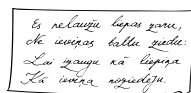 Es nelauzu liepas zaru,
Ne ieviņas baltu ziedu:
Lai izaugu kā liepiņa
Kā ieviņa noziedēju.